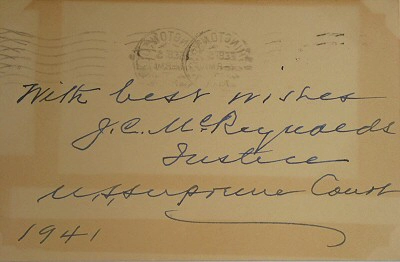 With best wishes
J. C. McReynolds
Justice
U.S. Supreme Court
1941